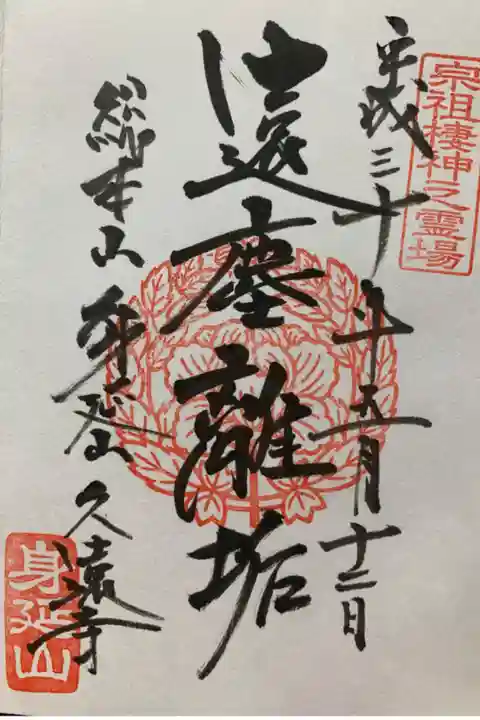 宗祖棲神之霊場
平成三十年五月十二日
遠塵離垢
総本山身延山久遠寺
身延山